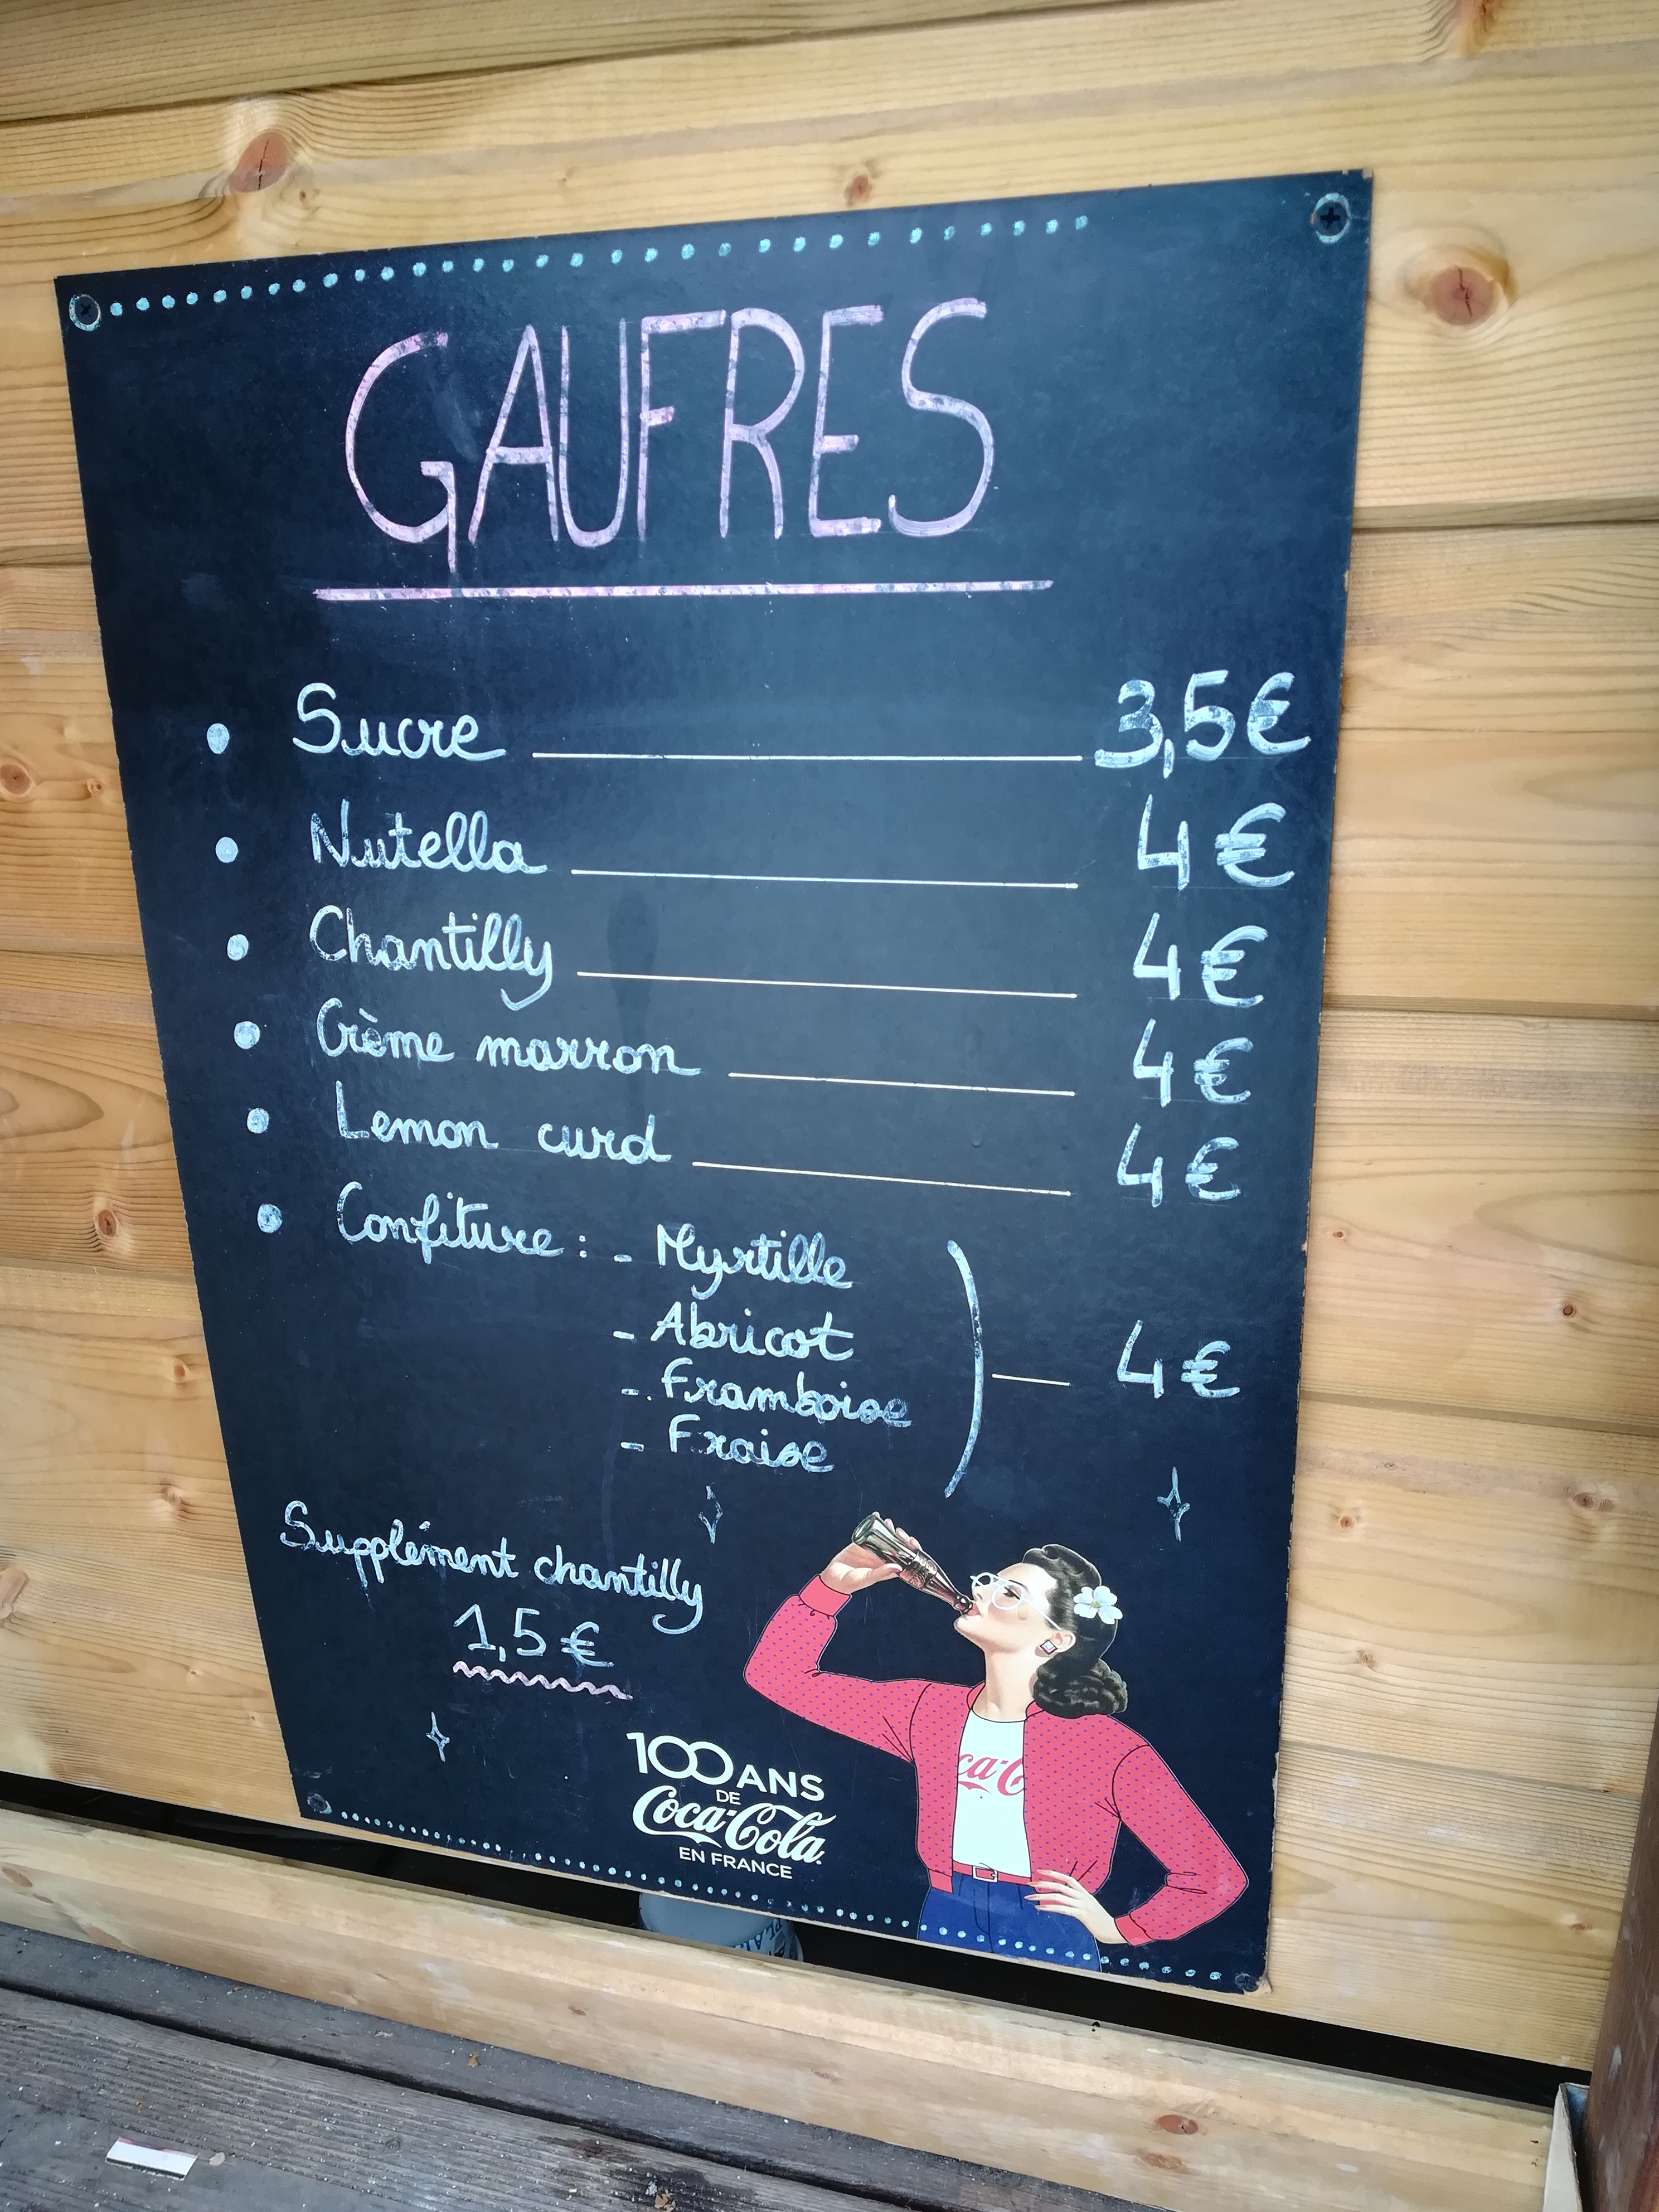 GAUFRES
• Sucre 3,5€
• Nutella 4€
• Chantilly 4€
• Crème marron 4€
• Lemon curd 4€
• Confiture : - Myrtille
- Abricot
- Framboise
- Fraise
4€
Supplément chantilly
1,5€
100 ANS
DE
Coca-Cola
EN FRANCE
ca-C